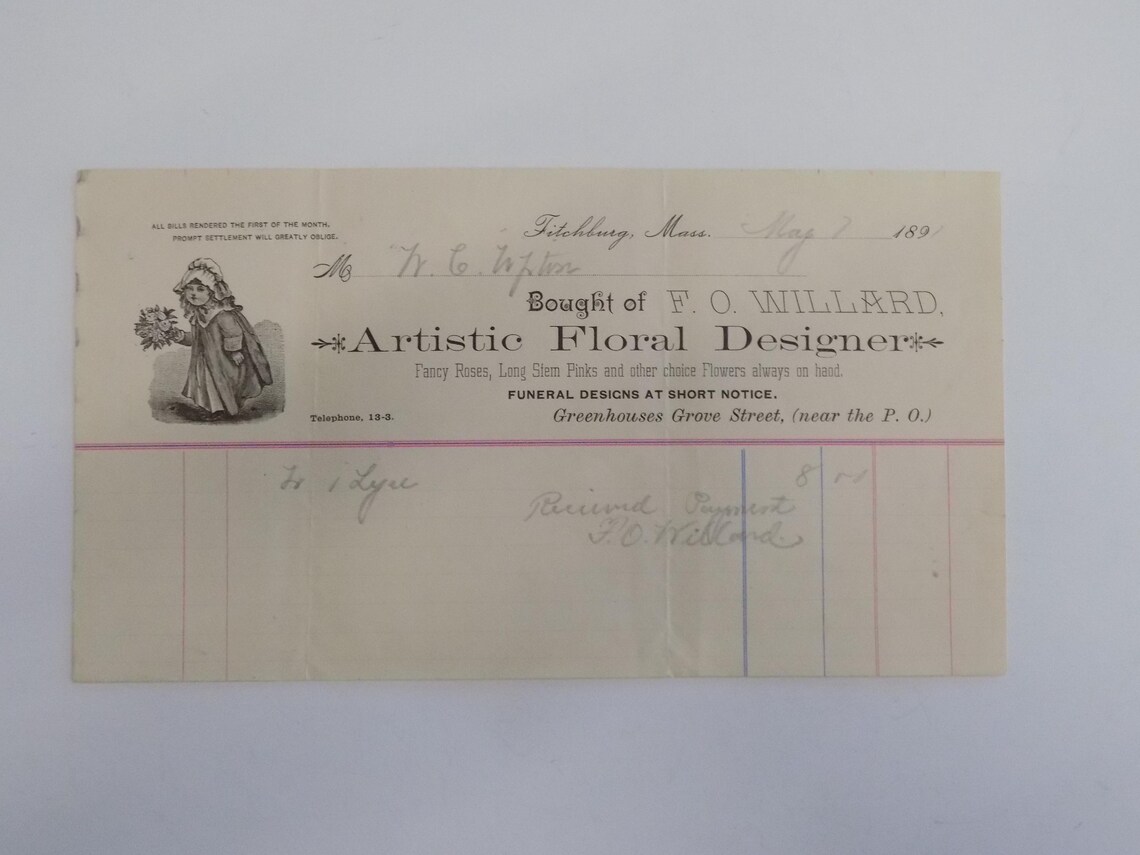 ALL BILLS RENDERED THE FIRST OF THE MONTH.
PROMPT SETTLEMENT WILL GREATLY OBLIGE.
Fitchburg, Mass. May 7 1891
M W. C. Upton
Bought of F. O. WILLARD,
Artistic Floral Designer
Fancy Roses, Long Stem Pinks and other choice Flowers always on hand.
FUNERAL DESIGNS AT SHORT NOTICE.
Telephone, 13-3. Greenhouses Grove Street, (near the P. O.)
1 Lyre 8
Received Payment
F. O. Willard